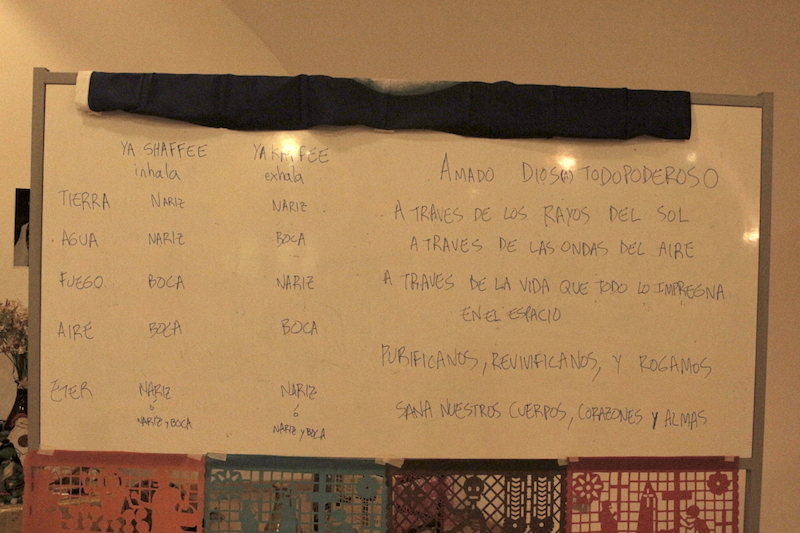 YA SHAFFEE YA KAFFEE
inhala exhala
TIERRA NARIZ NARIZ
AGUA NARIZ BOCA
FUEGO BOCA NARIZ
AIRE BOCA BOCA
ETER NARIZ NARIZ
ó ó
NARIZ Y BOCA NARIZ Y BOCA
AMADO DIOS(A) TODOPODEROSO
A TRAVES DE LOS RAYOS DEL SOL
A TRAVES DE LAS ONDAS DEL AIRE
A TRAVES DE LA VIDA QUE TODO LO IMPREGNA
EN EL ESPACIO
PURIFICANOS, REVIVIFICANOS, Y ROGAMOS
SANA NUESTROS CUERPOS, CORAZONES Y ALMAS